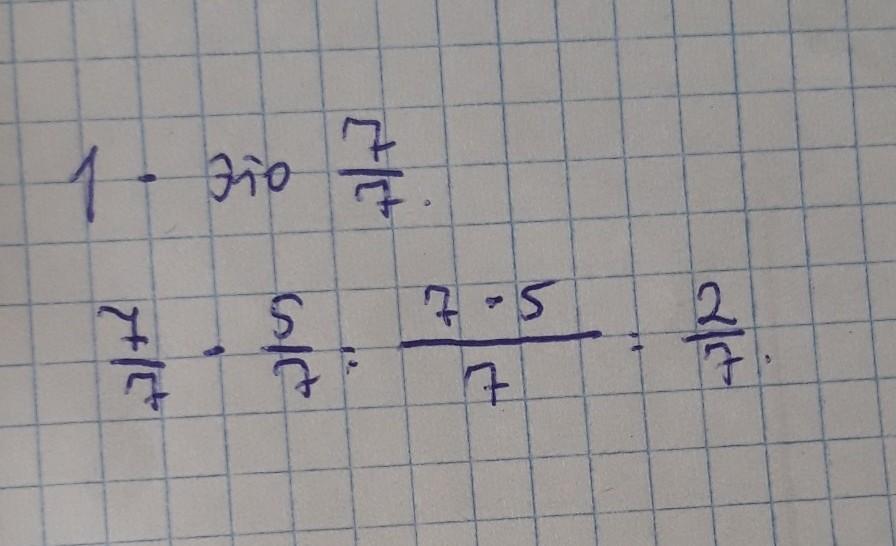 1 - это 7/7.
7/7 - 5/7 = (7 - 5)/7 = 2/7.